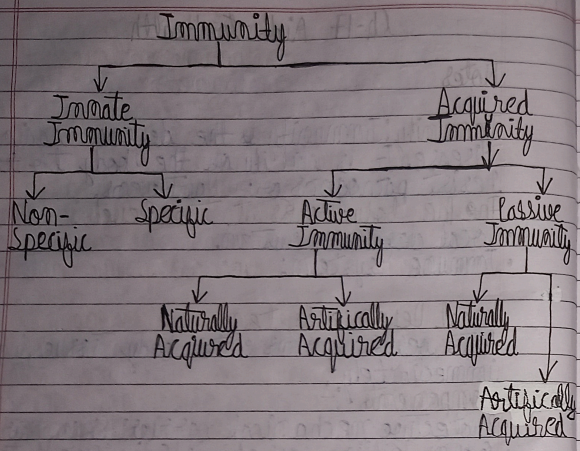 Immunity
Innate
Immunity
Acquired
Immunity
Non-
Specific
Specific
Active
Immunity
Passive
Immunity
Naturally
Acquired
Artifically
Acquired
Naturally
Acquired
Artifically
Acquired